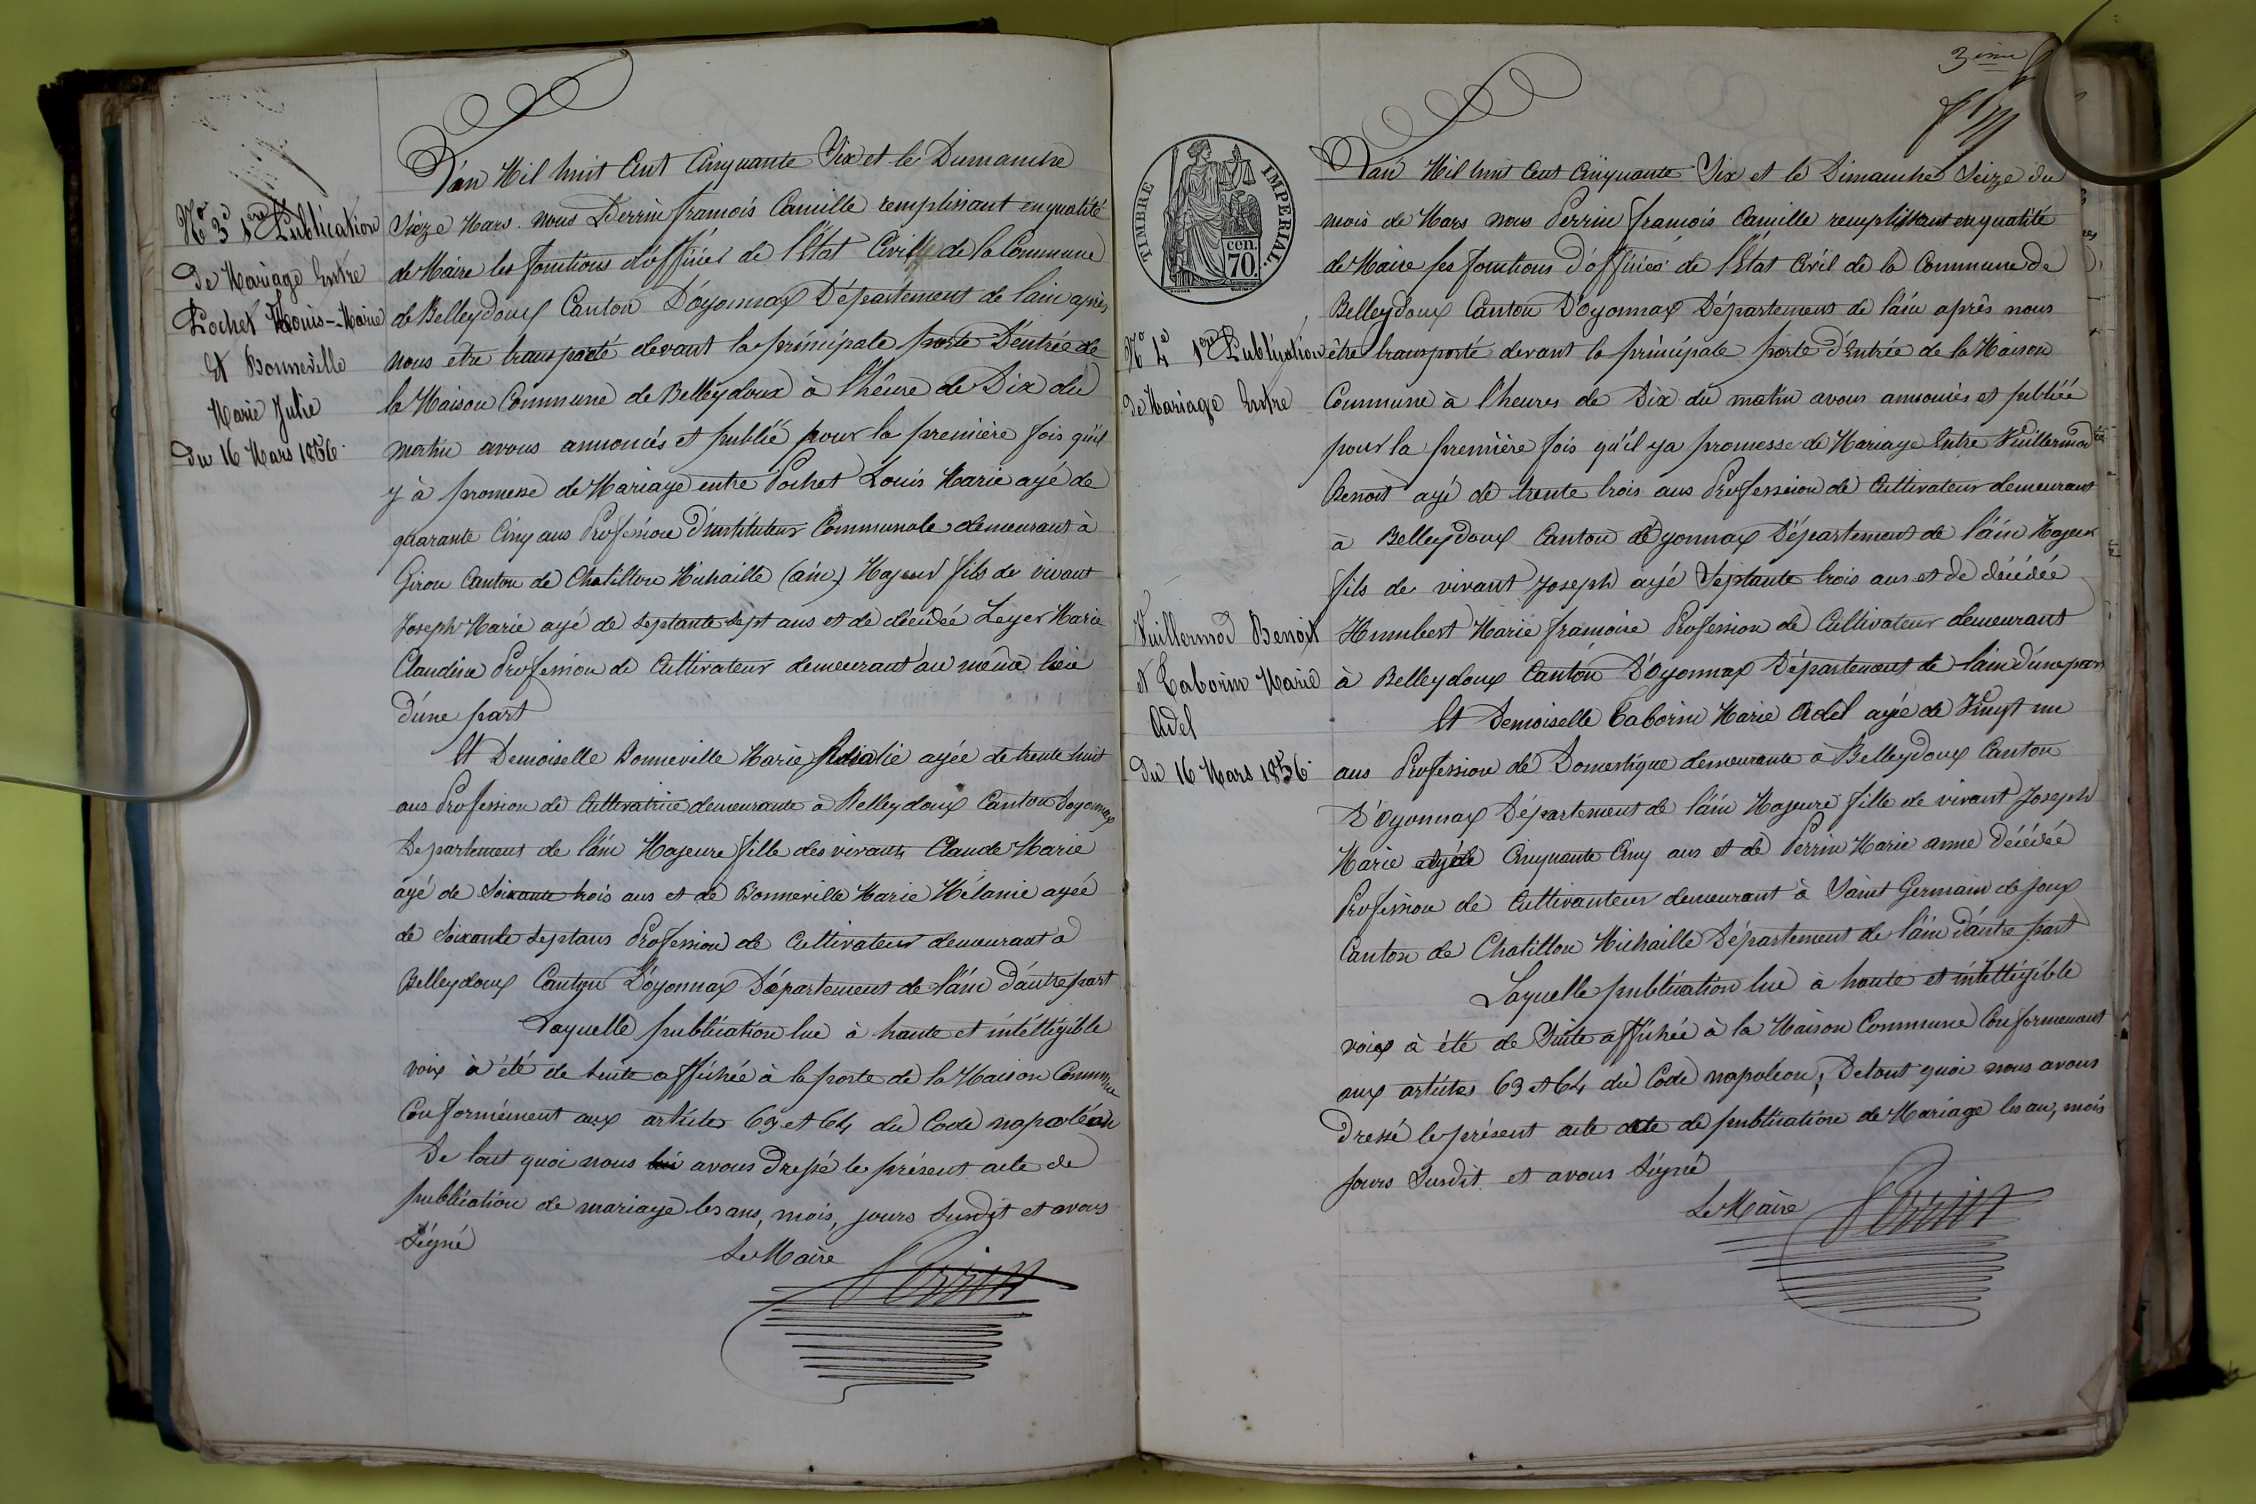 No 3e 1ère Publication
de Mariage Entre
Pochet Louis-Marie
Et Bonneville
Marie Julie
du 16 Mars 1856.
L'an Mil huit Cent Cinquante Six et le Dimanche
Sieze Mars. nous Perrin francois Camille remplissant en qualité
de Maire les fonctions d'officier de l'Etat Civil de la Commune
de Belleydoux Canton D'oyonnax Département de l'ain après
nous être transporté devant la principale porte D'entrée de
la Maison Commune de Belleydoux à l'heure de Dix du
matin avons annoncés et publié pour la première fois qu'il
y à promesse de Mariage entre Pochet Louis Marie agé de
quarante Cinq ans Profession d'instituteur Communale demeurant à
Giron Canton de Chatillon Michaille (ain) Majeur fils de vivant
Joseph Marie agé de septante sept ans et de décédée Leyer Marie
Claudine Profession de Cultivateur demeurant au même lieu
d'une part
Et Demoiselle Bonneville Marie agée de trente huit
ans Profession de Cultivatrice demeurante à Belleydoux Canton Doyonnax
Departement de l'ain Majeure fille des vivants Claude Marie
agé de Soixante trois ans et de Bonneville Marie Mélanie agée
de Soixante Sept ans Profession de Cultivateur demeurant a
Belleydoux Canton D'oyonnax Département de l'ain d'autre part
Laquelle publication lue à haute et intélligible
voix à été de Suite affichée à la porte de la Maison Commune
Conformément aux articles 63 et 64 du Code napoléon
De tout quoi nous avons Dressé le présent acte de
publication de mariage les ans, mois, jours Susdit et avons
Signé
Le Maire
Perrin
3ème
TIMBRE IMPERIAL.
70. cen.
No 4e 1ère Publication
de Mariage Entre
Vuillermod Benoit
et Taborin Marie
Adel
du 16 Mars 1856.
L'an Mil huit Cent Cinquante Six et le Dimanche Seize du
mois de Mars nous Perrin francois Camille remplissant en qualité
de Maire les fonctions d'officier de l'Etat Civil de la Commune de
Belleydoux Canton D'oyonnax Département de l'ain après nous
être transporté devant la principale porte d'Entrée de la Maison
Commune à l'heures de Dix du matin avons annoncés et publiéé
pour la première fois qu'il ya promesse de Mariage Entre Vuillermod
Benoit agé de trente trois ans Profession de Cultivateur demeurant
à Belleydoux Canton d'oyonnax Département de l'ain Majeur
fils de vivant Joseph agé Septante trois ans et de décédée
Humbert Marie francoise Profession de Cultivateur demeurant
à Belleydoux Canton D'Oyonnax Département de l'ain d'une part
Et Demoiselle Taborin Marie Adel agée de Vingt un
ans Profession de Domestique demeurante à Belleydoux Canton
D'Oyonnax Département de l'ain Majeure fille de vivant Joseph
Marie agé de Cinquante Cinq ans et de Perrin Marie anne décédée
Profession de Cultivanteur demeurant à Saint Germain de Joux
Canton de Chatillon Michaille Département de l'ain d'autre part
Laquelle publication lue à haute et intélligible
voix à été de Suite affichée à la Maison Commune Conformement
aux articles 63 et 64 du Code napoleon, De tout quoi nous avons
Dressé le présent acte de publication de Mariage les an, mois
Jours Susdit et avons Signé
Le Maire
Perrin